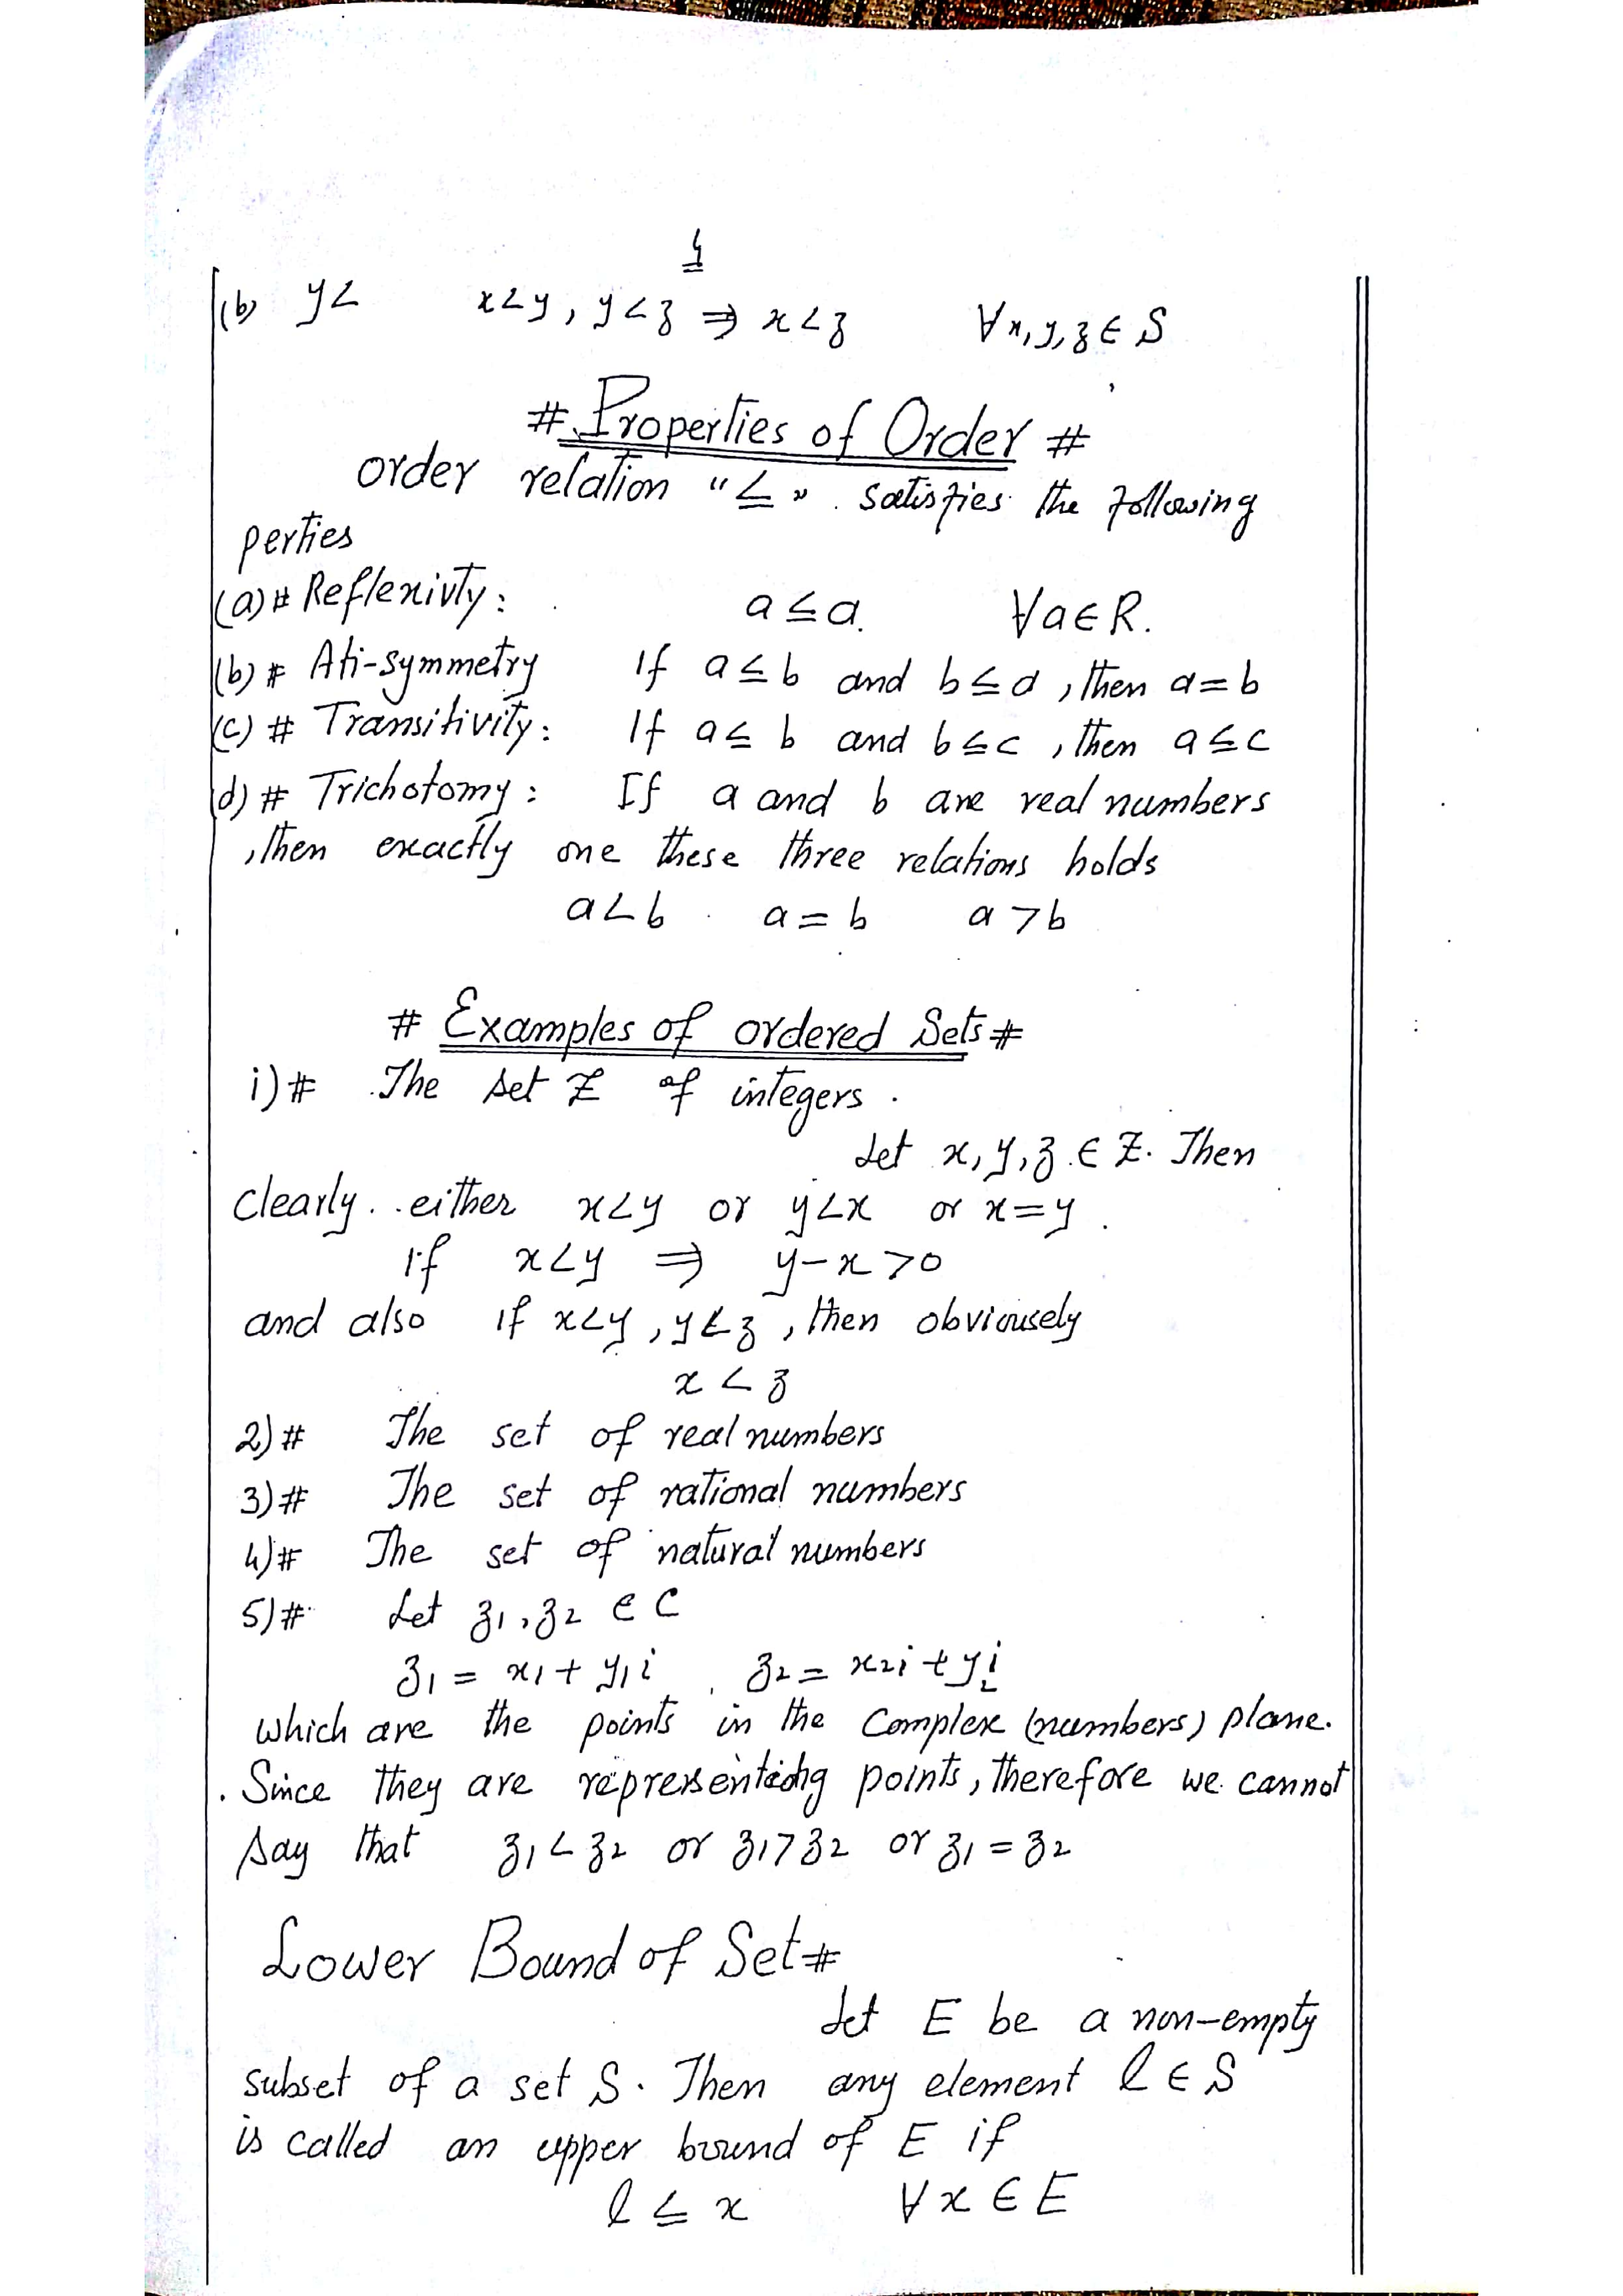 4
(b) y< x<y, y<z ⇒ x<z ∀x,y,z ∈ S
# Properties of Order #
order relation "≤". satisfies the following
perties
(a)# Reflexivty: a≤a. ∀a∈R.
(b)# Ati-symmetry If a≤b and b≤a, then a=b
(c)# Transitivity: If a≤b and b≤c, then a≤c
(d)# Trichotomy: If a and b are real numbers
, then exactly one these three relations holds
a<b a=b a>b
# Examples of ordered Sets #
i)# The set Z of integers.
Let x,y,z ∈ Z. Then
clearly either x<y or y<x or x=y.
if x<y ⇒ y-x>0
and also if x<y, y<z, then obviousely
x<z
2)# The set of real numbers
3)# The set of rational numbers
4)# The set of natural numbers
5)# Let z1, z2 ∈ C
z1 = x1+y1i, z2 = x2i+y2i
which are the points in the Complex (numbers) plane.
Since they are representing points, therefore we cannot
say that z1<z2 or z1>z2 or z1=z2
Lower Bound of Set#
Let E be a non-empty
subset of a set S. Then any element l∈S
is called an upper bound of E if
l≤x ∀x∈E